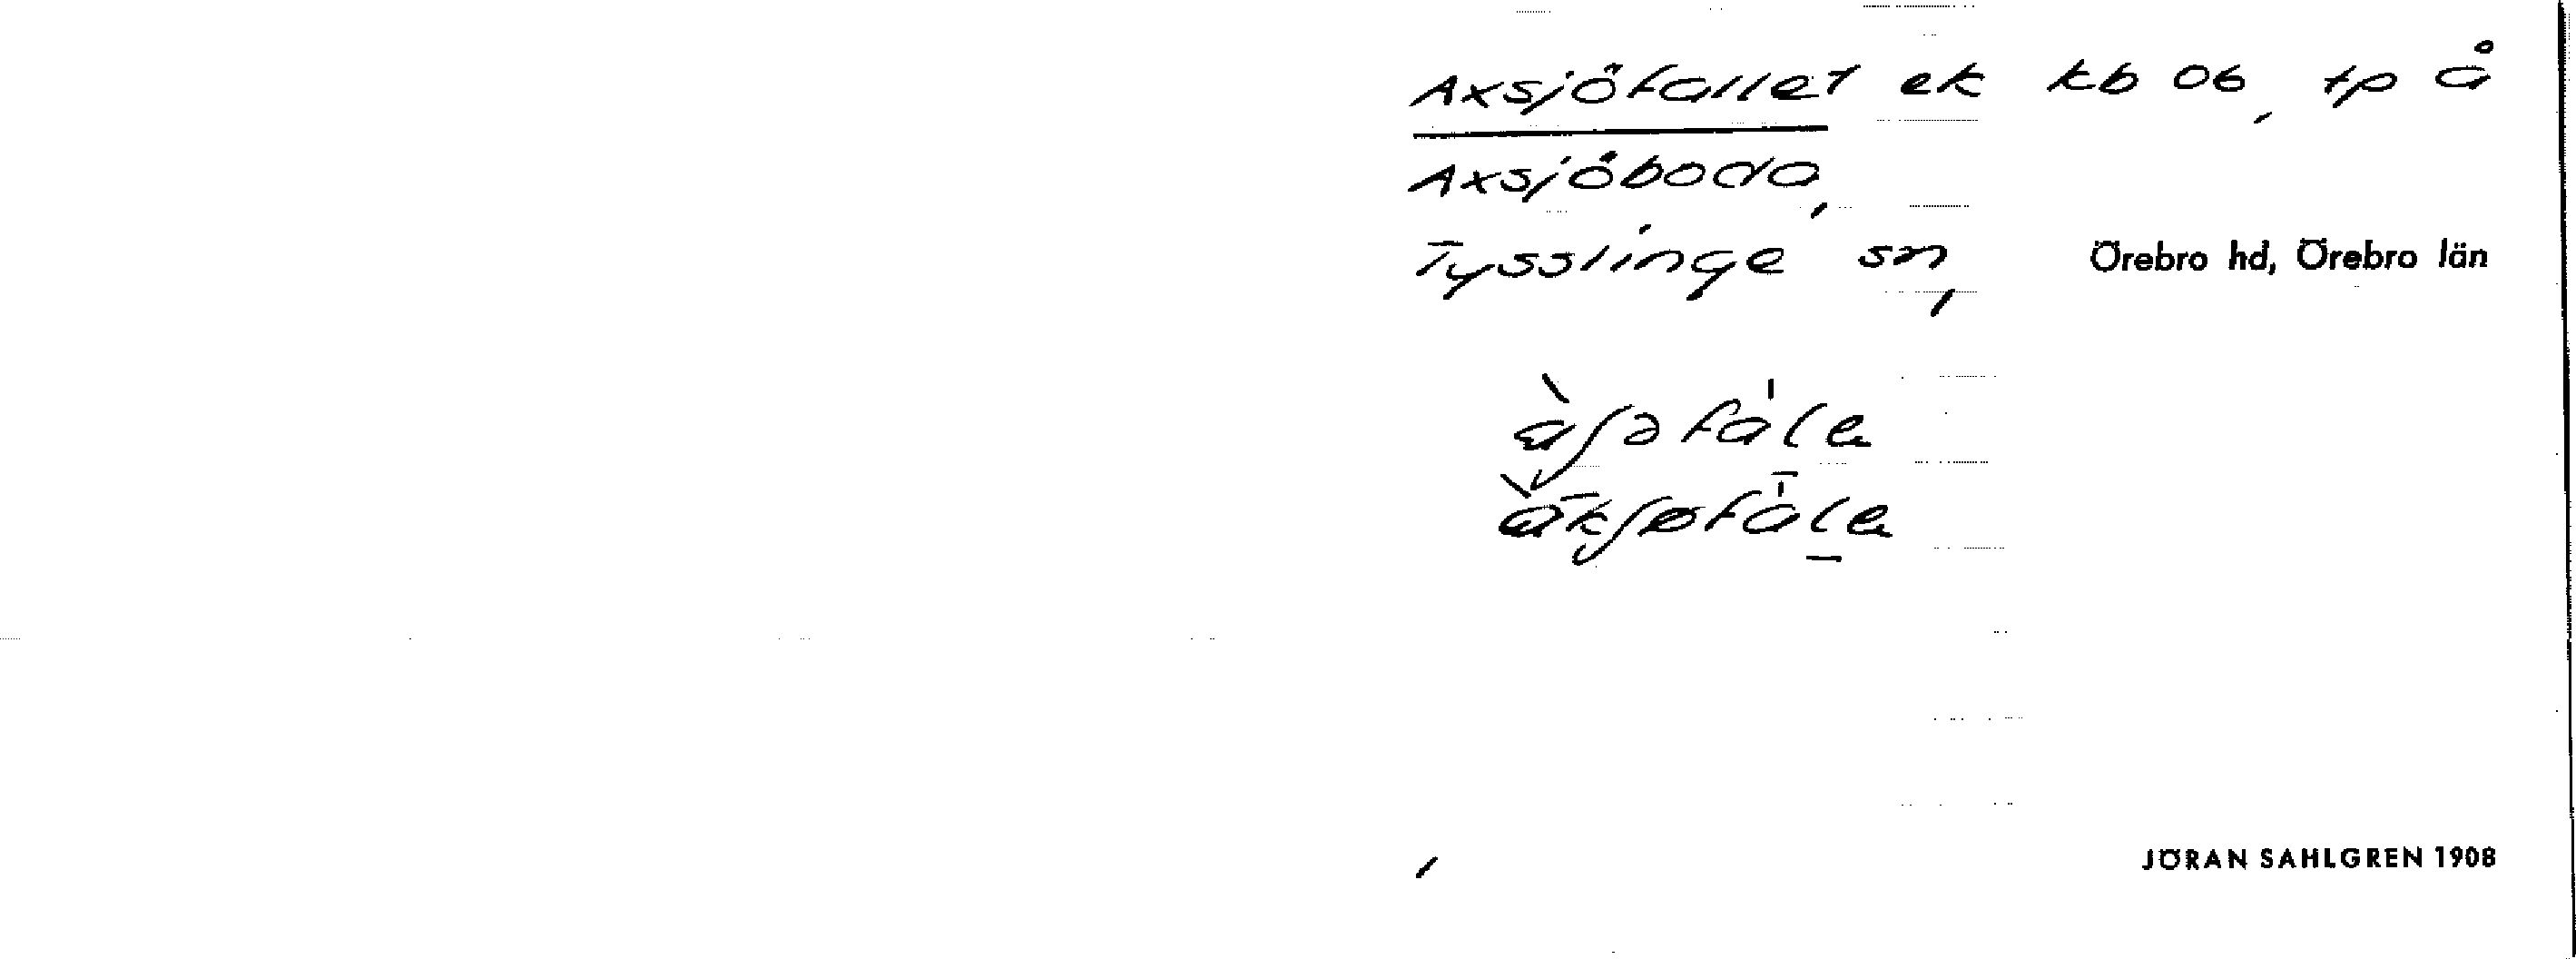 Axsjöfallet ek kb 06, tp å
Axsjöboda,
Tysslinge sn, Örebro hd, Örebro län
àʃəfàle
àkʃøfàle
JÖRAN SAHLGREN 1908